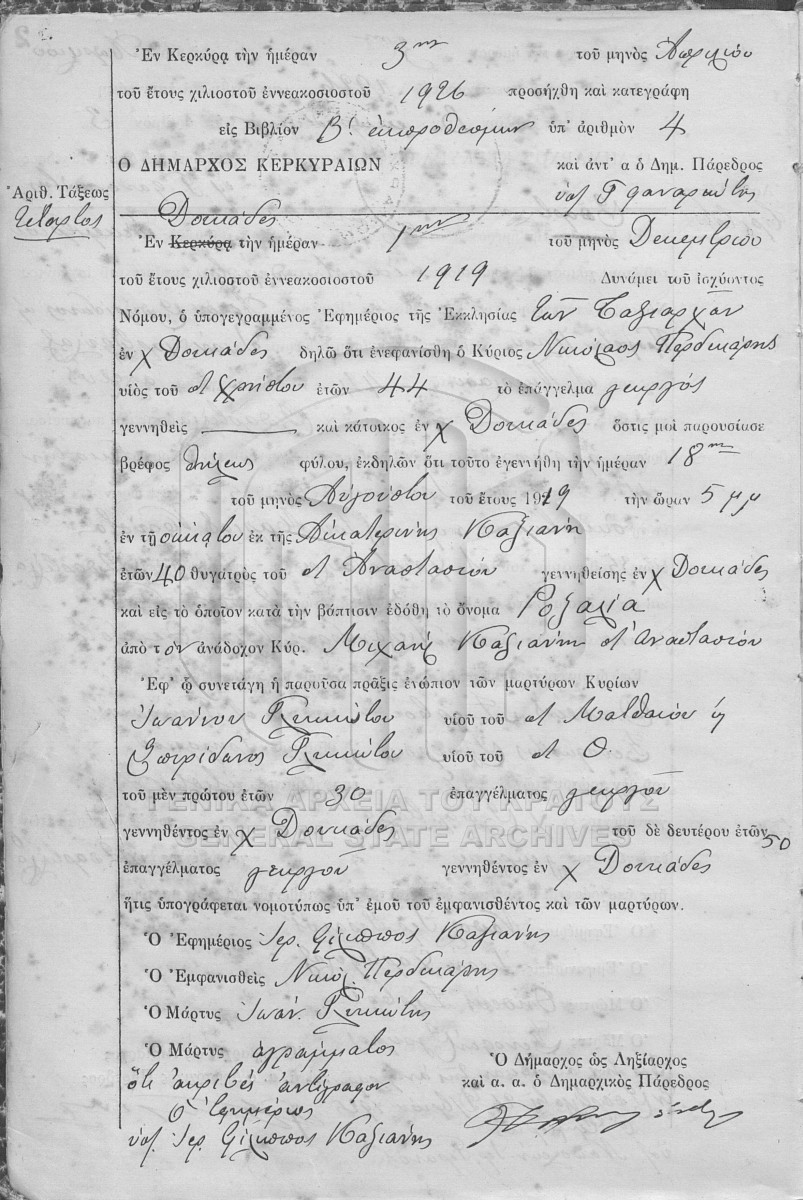 Ἐν Κερκύρᾳ τὴν ἡμέραν 3ην τοῦ μηνὸς Ἀπριλίου
τοῦ ἔτους χιλιοστοῦ ἐννεακοσιοστοῦ 1926 προσήχθη καὶ κατεγράφη
εἰς Βιβλίον Βʹ ἐκπροθέσμων ὑπ' ἀριθμὸν 4
Ο ΔΗΜΑΡΧΟΣ ΚΕΡΚΥΡΑΙΩΝ καὶ ἀντ' α ὁ Δημ. Πάρεδρος
Ἀριθ. Τάξεως
τέταρτος
Δουκάδες
Ἐν Κερκύρᾳ τὴν ἡμέραν 1ην τοῦ μηνὸς Δεκεμβρίου
τοῦ ἔτους χιλιοστοῦ ἐννεακοσιοστοῦ 1919 Δυνάμει τοῦ ἰσχύοντος
Νόμου, ὁ ὑπογεγραμμένος Ἐφημέριος τῆς Ἐκκλησίας τῶν Ταξιαρχῶν
ἐν χ Δουκάδες δηλῶ ὅτι ἐνεφανίσθη ὁ Κύριος Νικόλαος Περδικάρης
υἱὸς τοῦ π Χρήστου ἐτῶν 44 τὸ ἐπάγγελμα γεωργός
γεννηθεὶς καὶ κάτοικος ἐν χ Δουκάδες ὅστις μοὶ παρουσίασε
βρέφος θήλεος φύλου, ἐκδηλῶν ὅτι τοῦτο ἐγεννήθη τὴν ἡμέραν 18ην
τοῦ μηνὸς Αὐγούστου τοῦ ἔτους 1919 τὴν ὥραν 5 μμ
ἐν τῇ οἰκίᾳ του ἐκ τῆς Αἰκατερίνης Βαζιάνη
ἐτῶν 40 θυγατρὸς τοῦ π Ἀναστασίου γεννηθείσης ἐν χ Δουκάδες
καὶ εἰς τὸ ὁποῖον κατὰ τὴν βάπτισιν ἐδόθη τὸ ὄνομα Ροζαλία
ἀπὸ τὸν ἀνάδοχον Κύρ. Μιχαὴλ Βαζιάνη π Ἀναστασίου
Ἐφ' ᾧ συνετάγη ἡ παροῦσα πρᾶξις ἐνώπιον τῶν μαρτύρων Κυρίων
Ἰωάννου Γκικώτου υἱοῦ τοῦ π Ματθαίου ἢ
Σπυρίδωνος Γκικώτου υἱοῦ τοῦ π Θ.
τοῦ μὲν πρώτου ἐτῶν 30 ἐπαγγέλματος γεωργοῦ
ΓΕΝΙΚΑ ΑΡΧΕΙΑ ΤΟΥ ΚΡΑΤΟΥΣ
γεννηθέντος ἐν χ Δουκάδες τοῦ δὲ δευτέρου ἐτῶν 50
GENERAL STATE ARCHIVES
ἐπαγγέλματος γεωργοῦ γεννηθέντος ἐν χ Δουκάδες
ἥτις ὑπογράφεται νομοτύπως ὑπ' ἐμοῦ τοῦ ἐμφανισθέντος καὶ τῶν μαρτύρων.
Ὁ Ἐφημέριος Ἱερ. Φίλιππος Βαζιάνης
Ὁ Ἐμφανισθεὶς Νικόλ. Περδικάρης
Ὁ Μάρτυς Ἰωάν. Γκικώτης
Ὁ Μάρτυς ἀγράμματος
Ὁ Δήμαρχος ὡς Ληξίαρχος
καὶ α. α. ὁ Δημαρχικὸς Πάρεδρος
ὅτι ἀκριβὲς ἀντίγραφον
ὁ Ἐφημέριος
ὑπ. Ἱερ. Φίλιππος Βαζιάνης